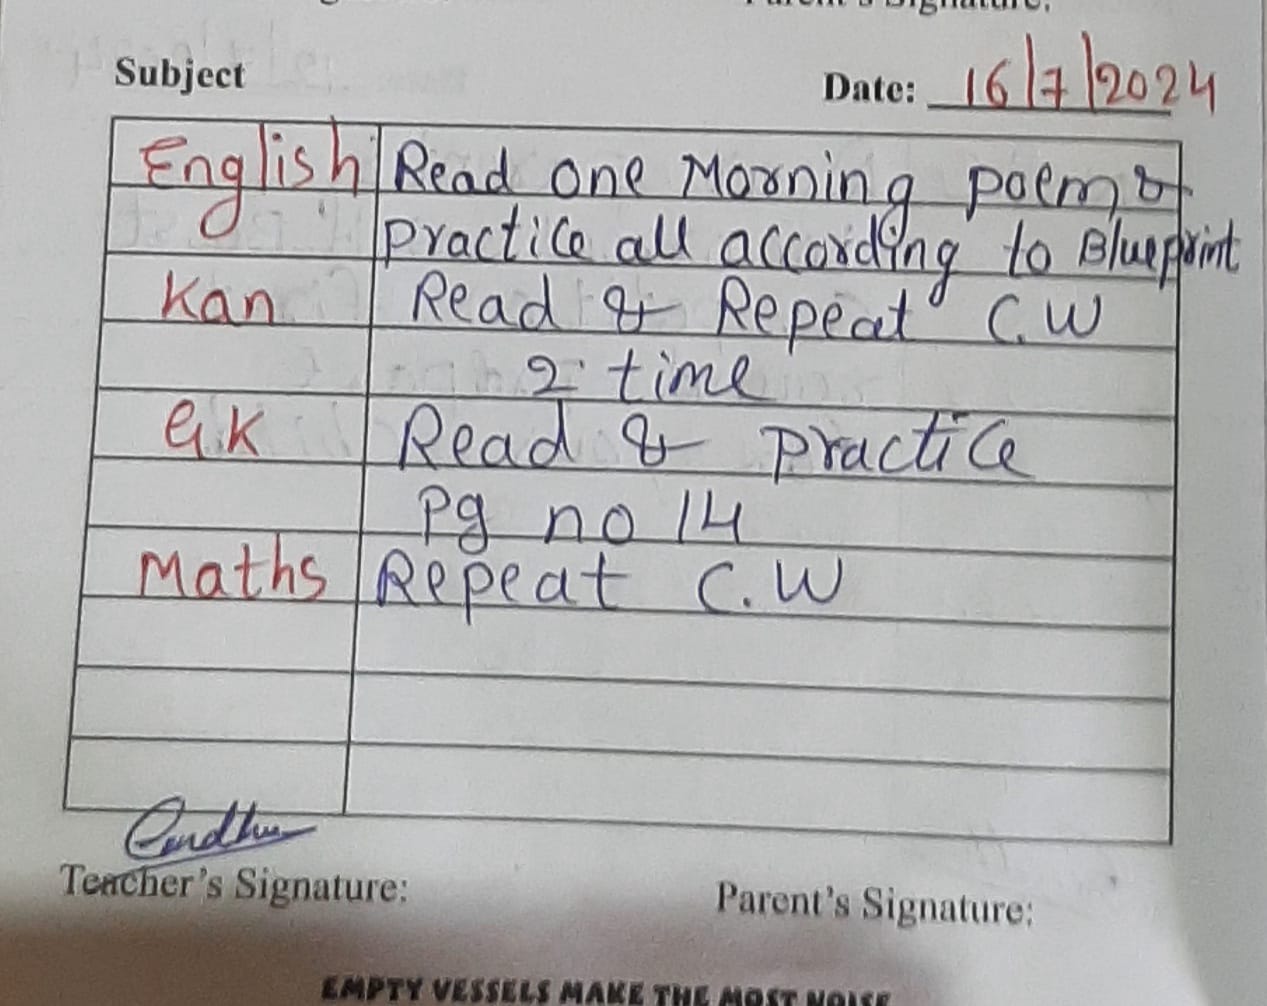 Parent's Signature:
Subject
Date: 16/7/2024
English Read one Morning poem &
practice all according to Blueprint
Kan Read & Repeat C.W
2 time
G.K Read & practice
Pg no 14
Maths Repeat C.W
Teacher's Signature:
Parent's Signature:
EMPTY VESSELS MAKE THE MOST NOISE